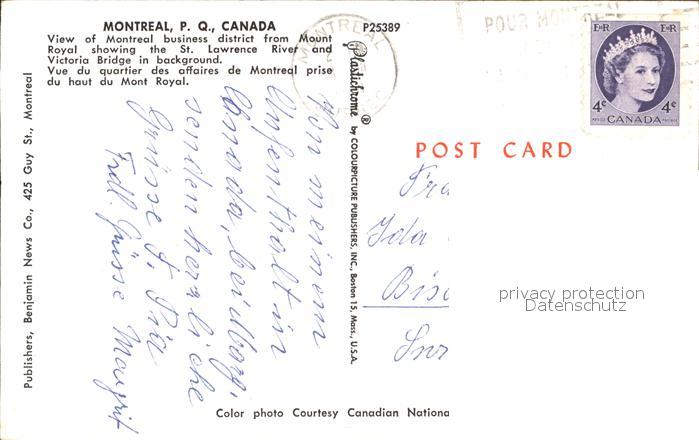 MONTREAL, P. Q., CANADA
P25389
View of Montreal business district from Mount
Royal showing the St. Lawrence River and
Victoria Bridge in background.
Vue du quartier des affaires de Montreal prise
du haut du Mont Royal.
MONTREAL
POUR MONTREAL
E II R E II R
4¢ 4¢
CANADA
POSTES POSTAGE
Publishers, Benjamin News Co., 425 Guy St., Montreal
Plastichrome ® by COLOURPICTURE PUBLISHERS, INC., Boston 15, Mass., U.S.A.
POST CARD
Von meinem
Aufenthalt in
Canada, bei
senden herzliche
Grüsse
Frdl. Grüsse Margrit
Fra
Ida
privacy protection
Datenschutz
Color photo Courtesy Canadian Nationa